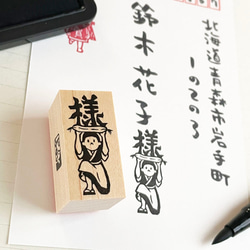 北海道青森市岩手町
1の2の3
鈴木花子樣
樣